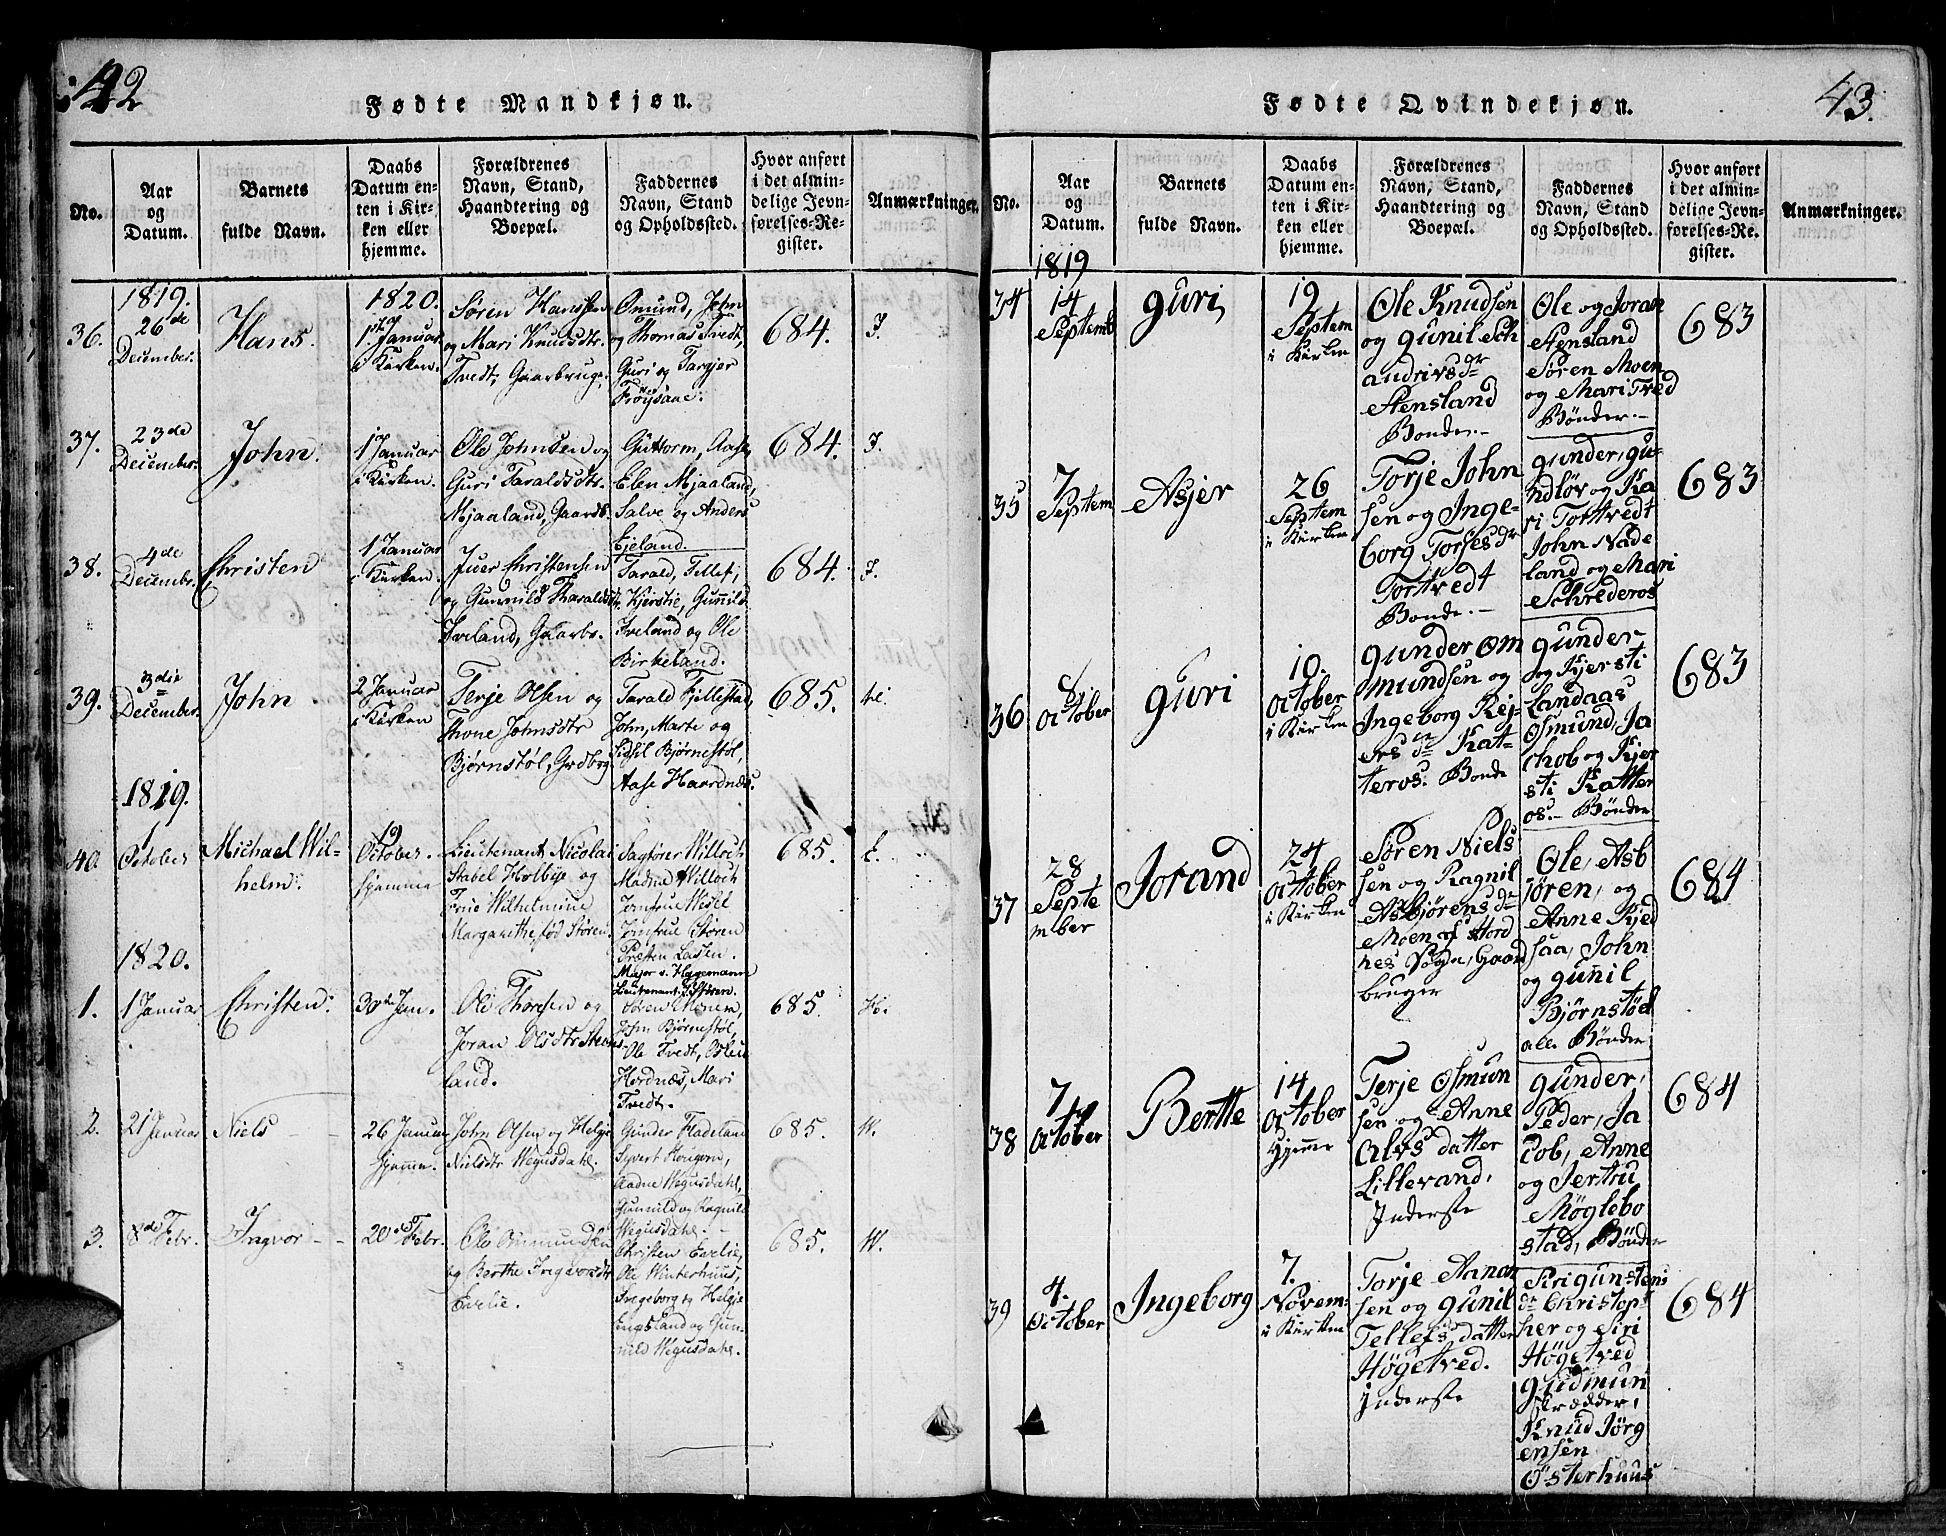 42
Fødte Mandkjøn.
No.
Aar
og
Datum.
Barnets
fulde Navn.
Daabs
Datum en-
ten i Kir-
ken eller
hjemme.
Forældrenes
Navn, Stand,
Haandtering og
Boepæl.
Faddernes
Navn, Stand
og Opholdssted.
Hvor anført
i det almin-
delige Jevn-
førelses-Re-
gister.
Anmærkninger.
36.
1819.
26de
December.
Hans.
1820.
1 Januar
i Kirken.
Søren Hanssen
og Mari Knudsdtr.
Tvedt, Gaarbruger
Omund, John
og Thomas Tvedt,
Guri og Targjer
Frøysaae.
684.
J.
37.
23de
December.
John.
1 Januar
i Kirken.
Ole Johnsen og
Guri Taraldsdtr.
Mjaaland, Gaardb.
Guttorm, Aase,
Elen Mjaaland,
Salve og Anders
Ejeland.
684.
J.
38.
4de
Decembr.
Christen
1 Januar
i Kirken.
Juer Christensen
og Gunnild Tharaldsdtr.
Iveland, Gaarbr.
Tarald, Tellef,
Kjerstie, Gunnild
Iveland og Ole
Birkeland.
684.
J.
39.
3die
December.
John
2 Januar
i Kirken
Terje Olsen og
Thone Johnsdtr
Bjørnstøl, Grdbrg.
Tarald Fillestad,
John, Marte og
Sidsil Bjørnestøl,
Aase Haardnæs.
685.
1819.
40.
October
Michael Wil-
helm.
19
October.
hjemme
Lieutenant Nicolai
Stabel Holbye og
Frue Wilhelmine
Margarethe fød Støren.
Sagfører Willoch
Madme Willoch
Jomfrue Wesel
Jomfrue Støren
Præsten Lassen.
Major v. Hagemann
Lieutenant Støren.
685.
E.
1820.
1.
1 Januar
Christen.
30te Jan.
Ole Thorsen og
Joran Olsdtr Stens-
land.
Søren Moen,
John Bjørnestøl,
Ole Tvedt, Osleu
Hordnæs, Mari
Tvedt.
685.
H.
2.
21 Januar
Niels
26 Januar
hjemme.
John Olsen og Helje
Nielsdtr Wegusdahl.
Gunder Fladeland
Syvert Hougom,
Aadne Wegusdahl,
Gunnild og Ragnild
Wegusdahl.
685.
W.
3.
8de Febr.
Ingvor
20de Febr.
Ole Omundsen
og Berthe Ingvorsdtr
Evelie.
Christen Evelie,
Ole Winterhuus,
Ingeborg og Helje
Engsland og Gun-
nild Wegusdahl.
685.
W.
43.
Fødte Qvindekjøn.
No.
Aar
og
Datum.
Barnets
fulde Navn.
Daabs
Datum en-
ten i Kir-
ken eller
hjemme.
Forældrenes
Navn, Stand,
Haandtering og
Boepæl.
Faddernes
Navn, Stand
og Opholdssted.
Hvor anført
i det almin-
delige Jevn-
førelses-Re-
gister.
Anmærkninger.
1819
34
14
Septemb
Guri
19
Septem
i Kirken
Ole Knudsen
og Gunil Sch
andrivs dr
Stensland
Bonde.
Ole og Joran
Stensland
Søren Moen
og Mari Tved
Bønder.
683
35
7
Septem
Asjer
26
Septem
i Kirken
Torje John
sen og Inge-
borg Torjes dr
Tortvedt
Bonde.
Gunder, Gu-
ndlør og Ka
ri Tortvedt
John Nade
land og Mari
Schrederos
683
36
8
October
Guri
10.
October
i Kirken
Gunder Om
mundsen og
Ingeborg Rej-
ers dr Kat-
teros. Bonde
Gunder
og Kjersti
Landaas
Osmund, Ja
chob og Kjer
sti Katter
os. Bønder
683
37
28
Septe
mber
Jorand
24
October
i Kirken
Søren Niels
sen og Ragnil
Asbjørens dr
Moen af Hord
nes Sogn, Gaard
bruger
Ole, Asb
jøren, og
Anne Kjed
saa, John
og Gunil
Bjørnstøel
alle Bønder
684
38
7
October
Berthe
14
October
hjemme
Terje Osmun
sen og Anne
Alvs datter
Lillevand,
Inderste
Gunder,
Peder, Ja
cob, Anne
og Jertru
Møglebo
stad, Bønder
684
39
4.
October
Ingeborg
7.
Novem-
i Kirken
Torje Aanon
sen og Gunil
Tellefs datter
Høgetved.
Inderste
Siri Gunstens
dr Christop-
her og Siri
Høgetved
Gudmun
Skrædder,
Knud Jørg
ensen
Østerhuus
684